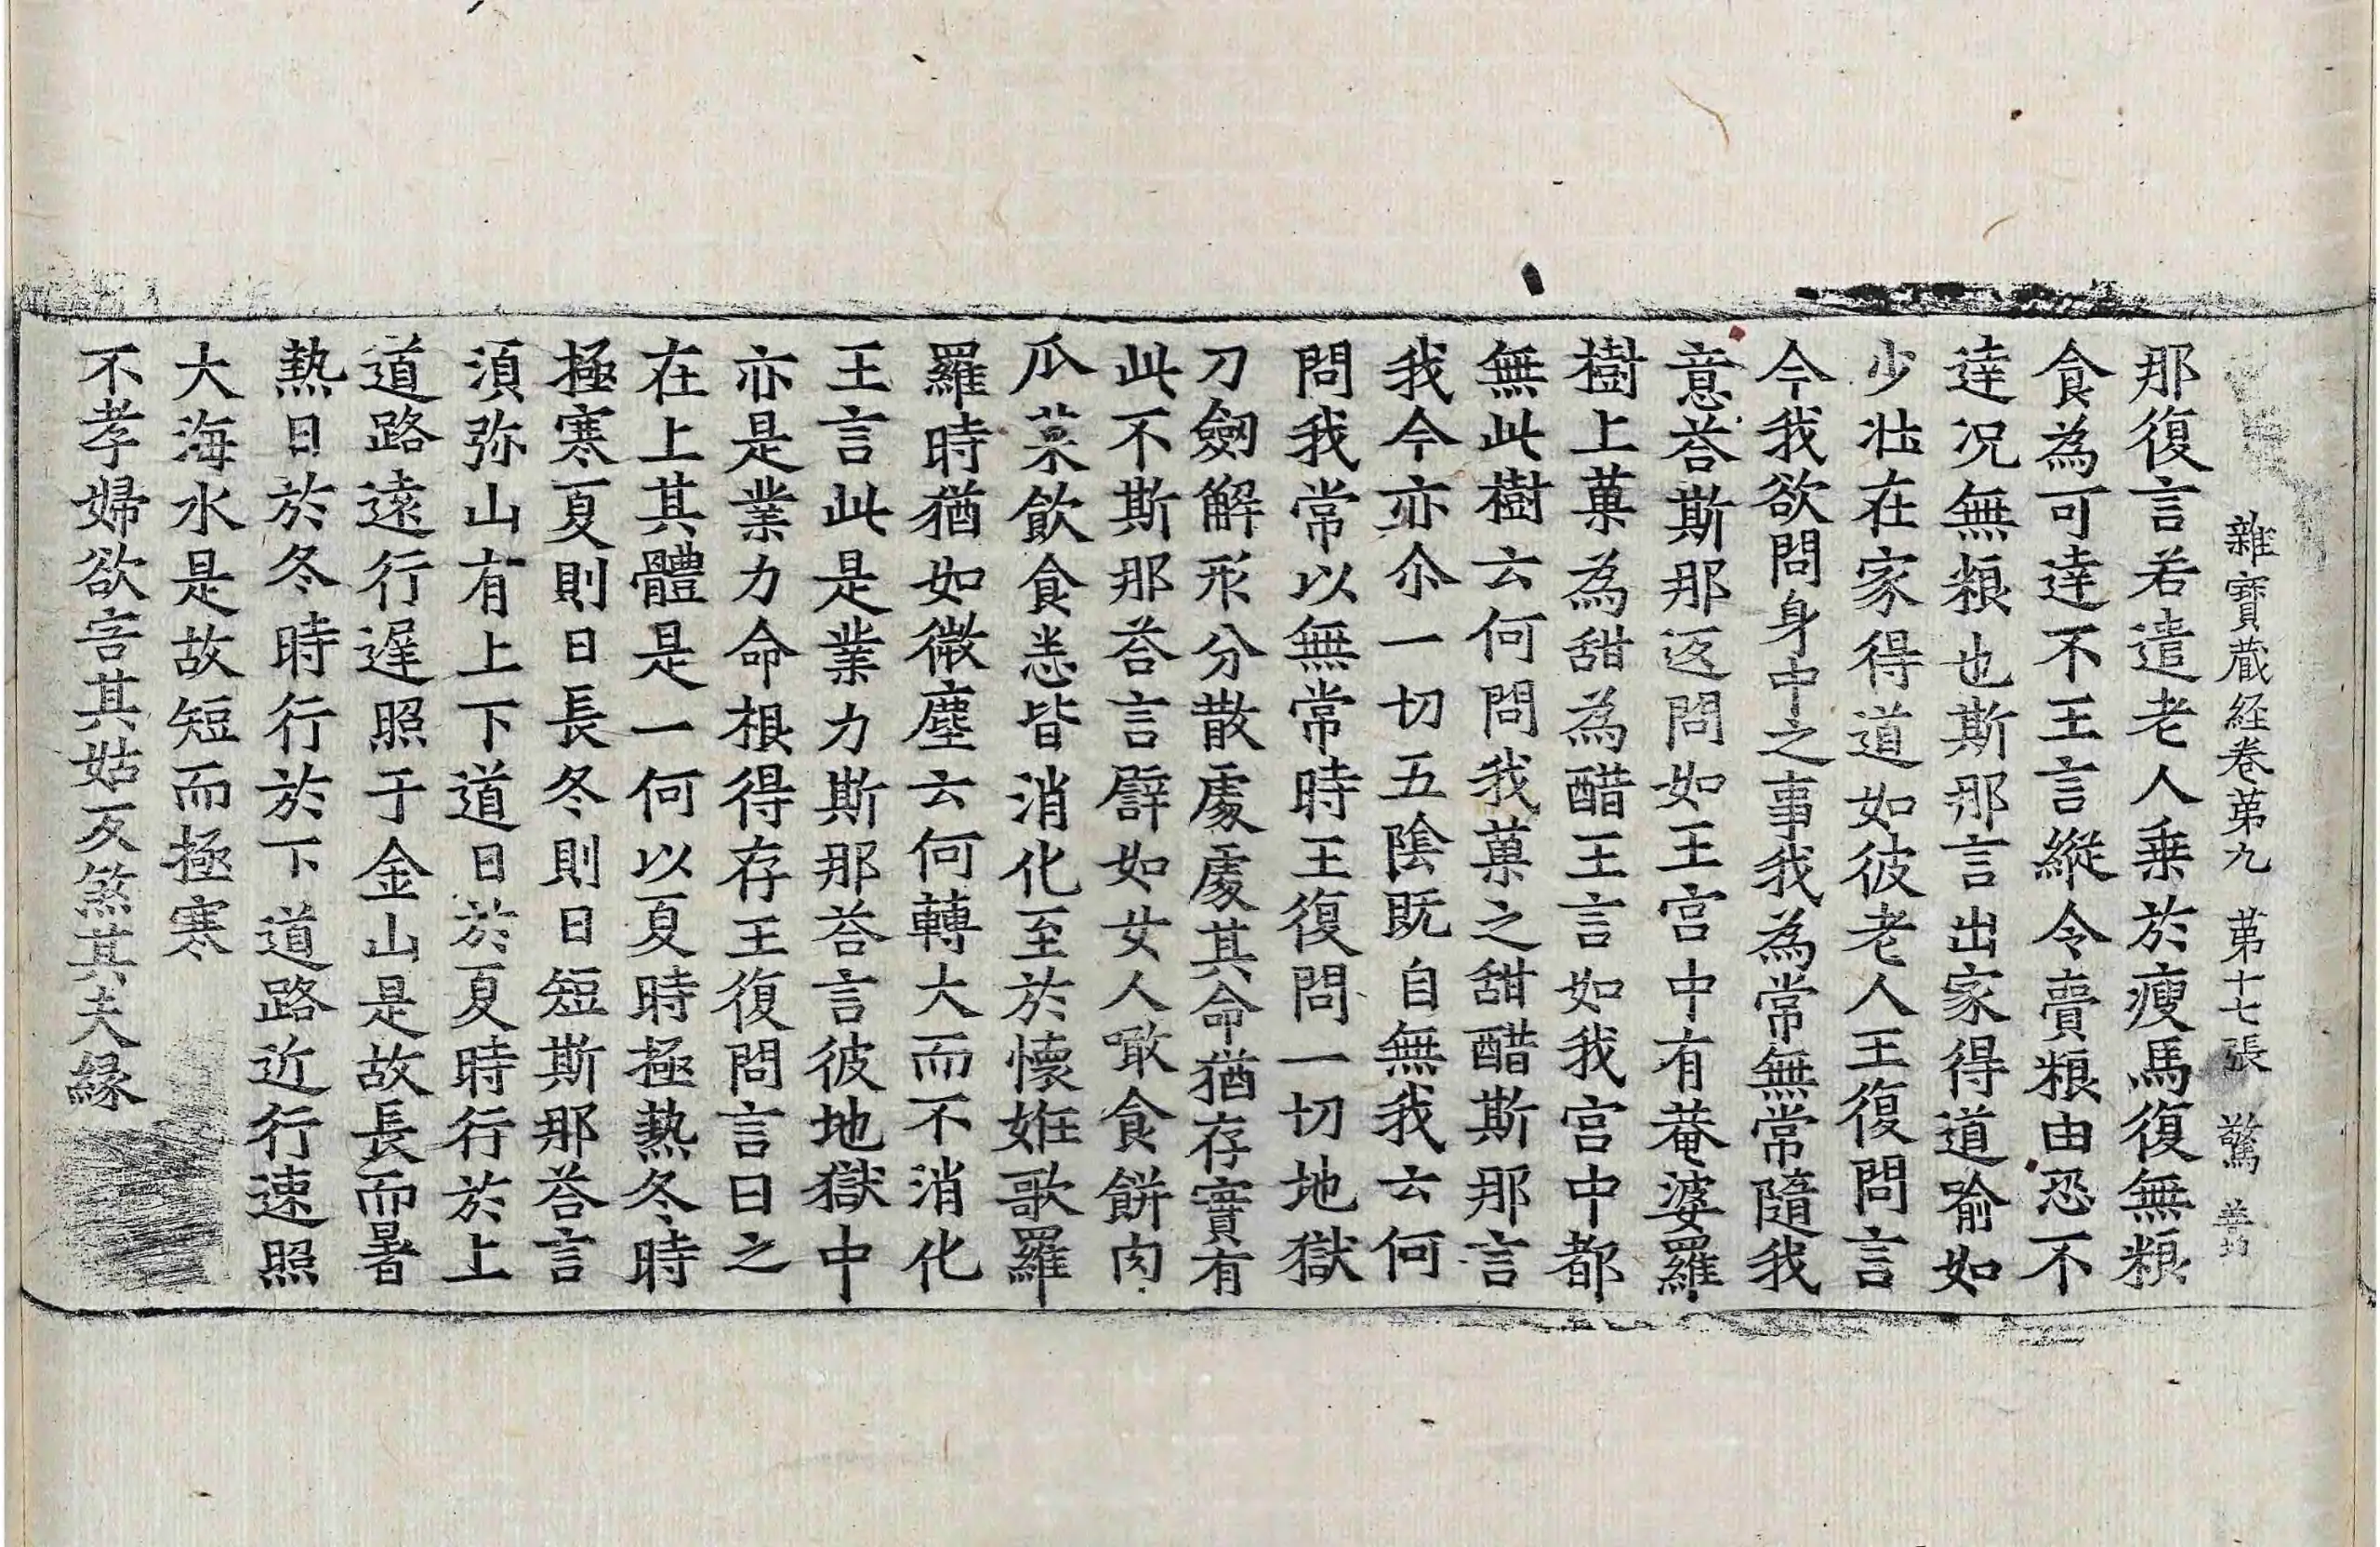 雜寶蔵経卷苐九 苐十七張 驚
那復言若遣老人乗於瘦馬復無粮
食為可達不王言縱令賷粮由恐不
達况無粮也斯那言出家得道喻如
少壮在家得道如彼老人王復問言
今我欲問身中之事我為常無常隨我
意荅斯那返問如王宫中有菴婆羅
樹上菓為甜為醋王言如我宫中都
無此樹云何問我菓之甜醋斯那言
我今亦尒一切五隂既自無我云何
問我常以無常時王復問一切地獄
刀劒解形分散處處其命猶存實有
此不斯那荅言譬如女人噉食餅肉
瓜菜飲食悉皆消化至於懐姙歌羅
羅時猶如微塵云何轉大而不消化
王言此是業力斯那荅言彼地獄中
亦是業力命根得存王復問言日之
在上其體是一何以夏時極熱冬時
極寒夏則日長冬則日短斯那荅言
湏弥山有上下道日於夏時行於上
道路遠行遅照于金山是故長而暑
熱日於冬時行於下道路近行速照
大海水是故短而極寒
不孝婦欲害其姑反煞其夫縁